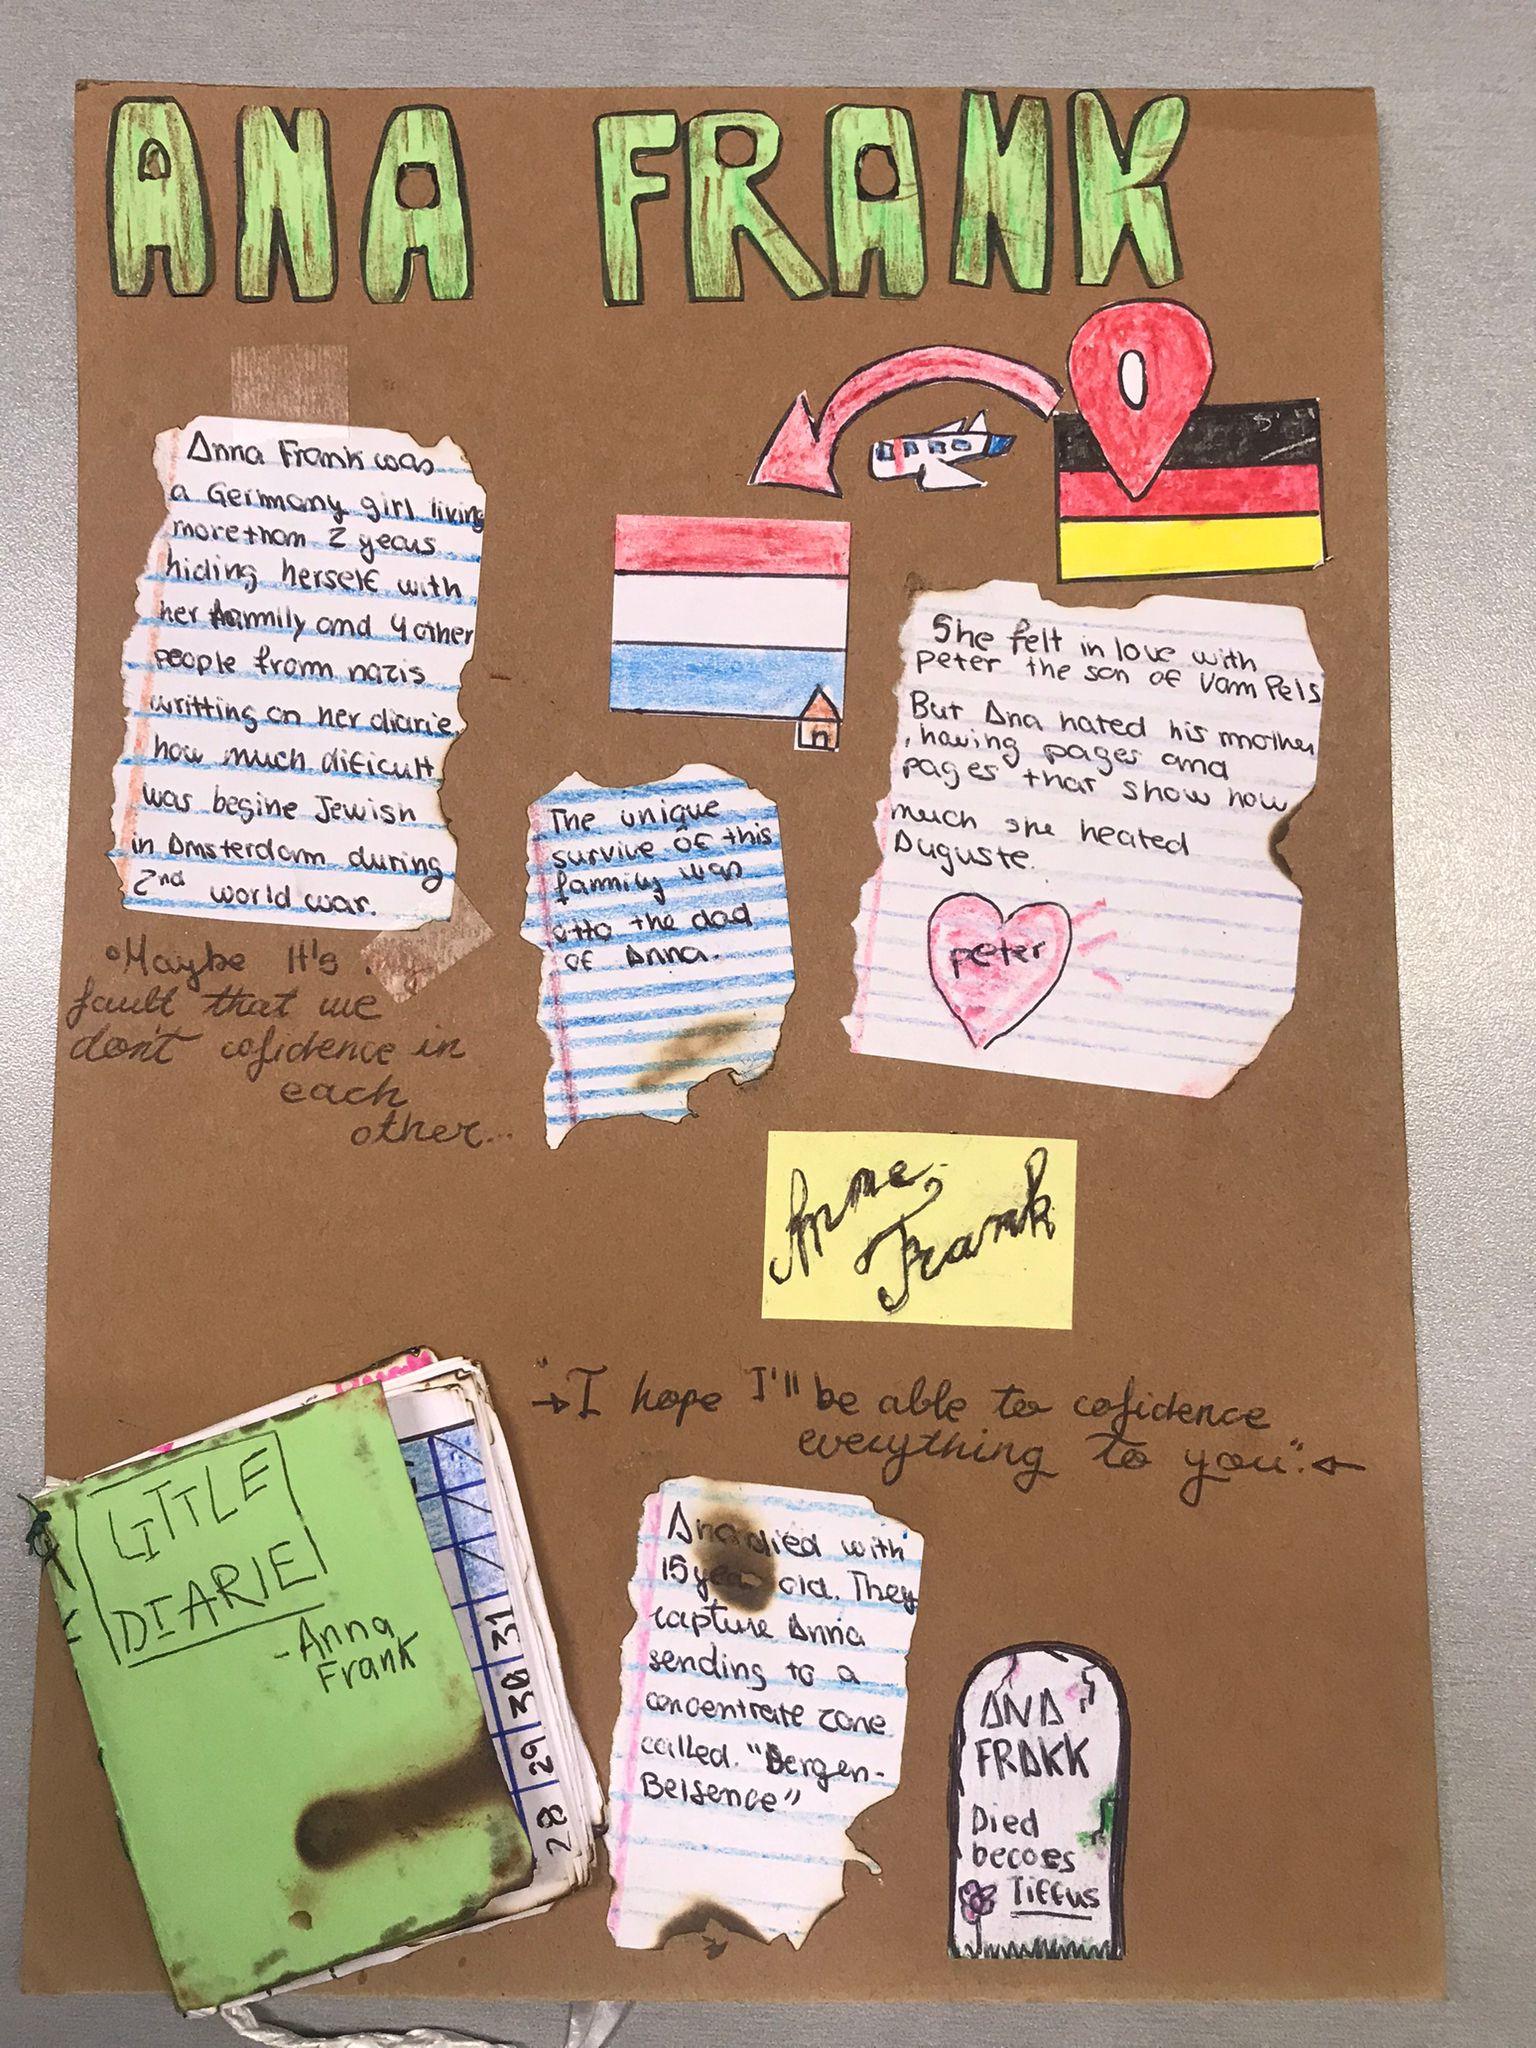 ANA FRANK
Anna Frank was
a Germany girl living
more than 2 years
hiding herself with
her fammily and 4 other
people from nazis
writting on her diarie
how much dificult
was begine Jewish
in Amsterdam during
2nd world war.
"Maybe It's
fault that we
don't cofidence in
each
other...
The unique
survive of this
fammily was
otto the dad
of Anna.
She felt in love with
peter the son of Vam Pels
But Ana hated his mother
, having pages and
pages that show how
much she heated
Auguste.
peter
n
Anne,
Frank
"→I hope I'll be able to cofidence
everything to you".←
LITTLE
DIARIE
-Anna
Frank
31
30
29
28
Ana died with
15 year old. They
capture Anna
sending to a
concentrate zone
called. "Bergen-
Belsence"
ANA
FRAKK
Died
becoes
Tiffus